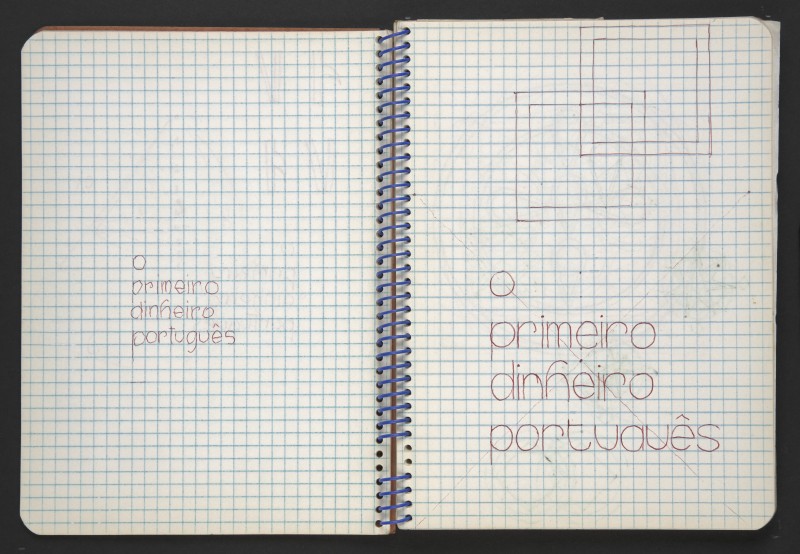 o
primeiro
dinheiro
português
o
primeiro
dinheiro
português